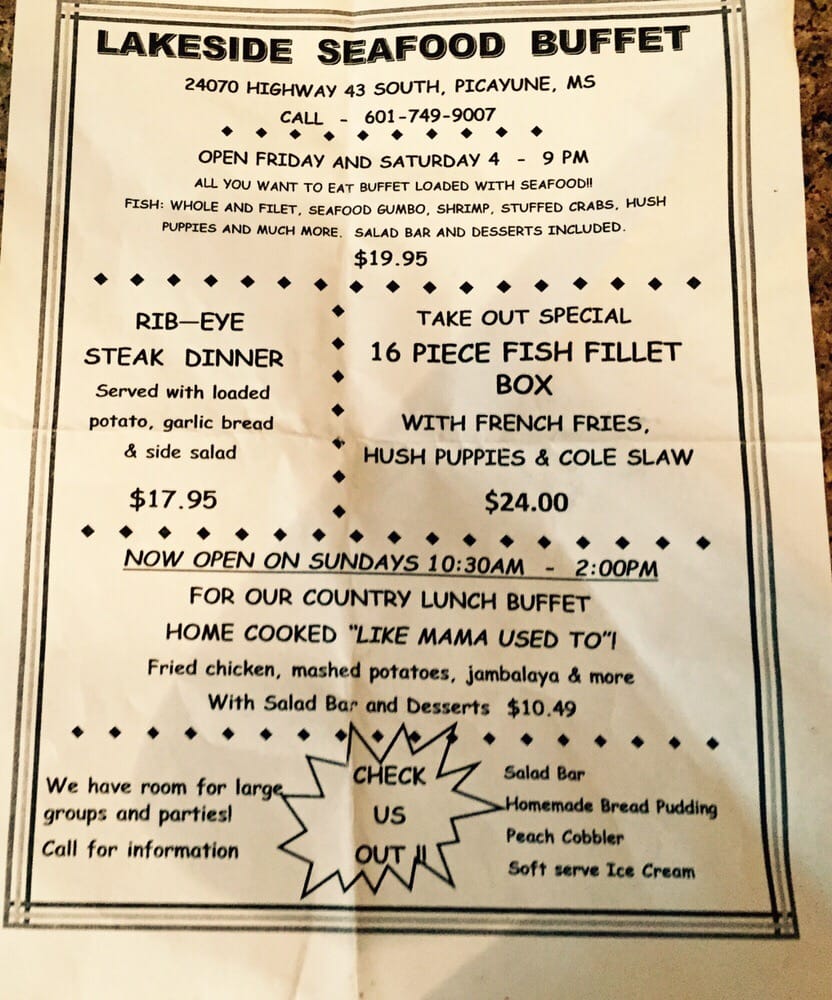 LAKESIDE SEAFOOD BUFFET
24070 HIGHWAY 43 SOUTH, PICAYUNE, MS
CALL - 601-749-9007
OPEN FRIDAY AND SATURDAY 4 - 9 PM
ALL YOU WANT TO EAT BUFFET LOADED WITH SEAFOOD!!
FISH: WHOLE AND FILET, SEAFOOD GUMBO, SHRIMP, STUFFED CRABS, HUSH
PUPPIES AND MUCH MORE. SALAD BAR AND DESSERTS INCLUDED.
$19.95
RIB—EYE
STEAK DINNER
Served with loaded
potato, garlic bread
& side salad
$17.95
TAKE OUT SPECIAL
16 PIECE FISH FILLET
BOX
WITH FRENCH FRIES,
HUSH PUPPIES & COLE SLAW
$24.00
NOW OPEN ON SUNDAYS 10:30AM - 2:00PM
FOR OUR COUNTRY LUNCH BUFFET
HOME COOKED "LIKE MAMA USED TO"!
Fried chicken, mashed potatoes, jambalaya & more
With Salad Bar and Desserts $10.49
We have room for large
groups and parties!
Call for information
CHECK
US
OUT !!
Salad Bar
Homemade Bread Pudding
Peach Cobbler
Soft serve Ice Cream